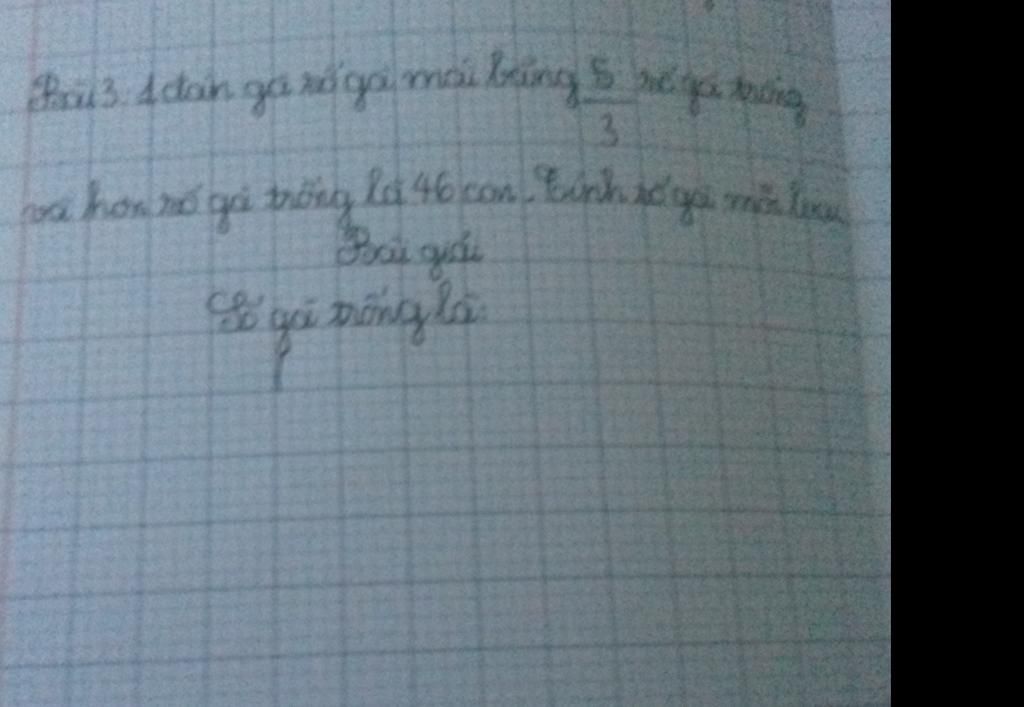 Bài 3. 1 đàn gà số gà mái bằng 5/3 số gà trống
và hơn số gà trống là 46 con. Tính số gà mỗi loại
Bài giải
Số gà trống là: